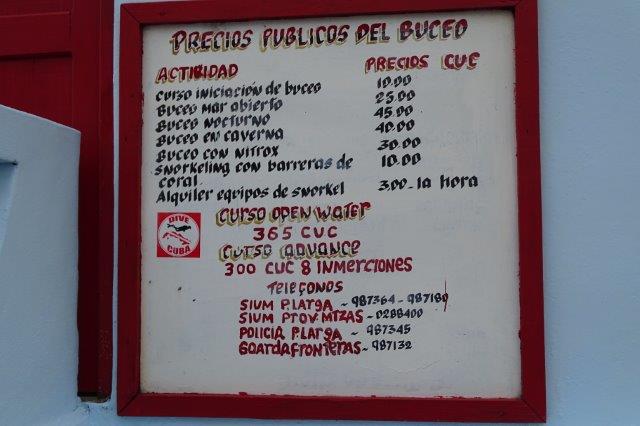 PRECIOS PUBLICOS DEL BUCEO
ACTIVIDAD PRECIOS CUC
CURSO INICIACIÓN DE BUCEO 10.00
BUCEO MAR ABIERTO 25.00
BUCEO NOCTURNO 45.00
BUCEO EN CAVERNA 40.00
BUCEO CON NITROX 30.00
SNORKELING CON BARRERAS DE 10.00
CORAL
Alquiler equipos de snorkel 3.00 - la hora
CURSO OPEN WATER
365 CUC
CURSO ADVANCE
300 CUC 8 INMERCIONES
DIVE
CUBA
TELEFONOS
SIUM P.LARGA - 987364 - 987180
SIUM PROV. MTZAS - 0288400
POLICIA P.LARGA - 987345
GUARDAFRONTERAS - 987132